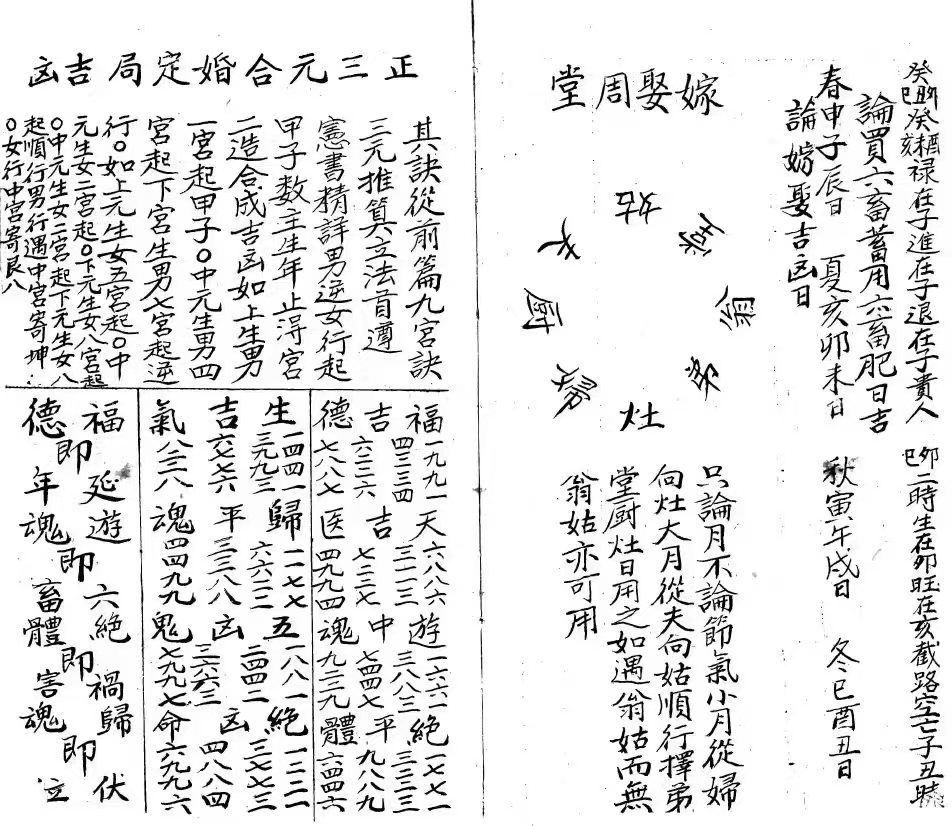 癸丑卯巳癸未酉亥禄在子進在子退在子貴人卯巳二時生在卯旺在亥截路空亡子丑時
論買六畜蓄用六畜肥日吉
春申子辰日 夏亥卯未日 秋寅午戌日 冬巳酉丑日
論嫁娶吉凶日
嫁娶周堂
姑
堂
翁
弟
灶
婦
厨
夫
只論月不論節氣小月從婦
向灶大月從夫向姑順行擇弟
堂厨灶日用之如遇翁姑而無
翁姑亦可用
正三元合婚定局吉凶
其訣從前篇九宮訣
三元推算立法首遵
憲書精詳男逆女行起
甲子数主生年止淂宮
二造合成吉凶如上生男
一宮起甲子〇中元生男四
宮起下宮生男七宮起逆
行〇如上元生女五宮起〇中
元生女二宮起〇下元生女八宮起
〇中元生女二宮起下元生女八
起順行男行遇中宮寄坤
〇女行中宮寄艮八
福一九九一天六八八六遊一六六一絶一七七一
四三三四 三一一三 三八八三 三二二三
吉六二二六吉七二二七中七四四七平九八八九
德七八八七医四九九四魂九二二九體六四四六
生一四四一歸一一七七五一八八一絶一二二一
三九九三 六六二二 二四四二 三七七三
吉六七七六平三三八八凶三六六三凶四八八四
氣八二二八魂四四九九鬼七九九七命六九九六
福延遊六絶禍歸伏
即即即即
德年魂畜體害魂位